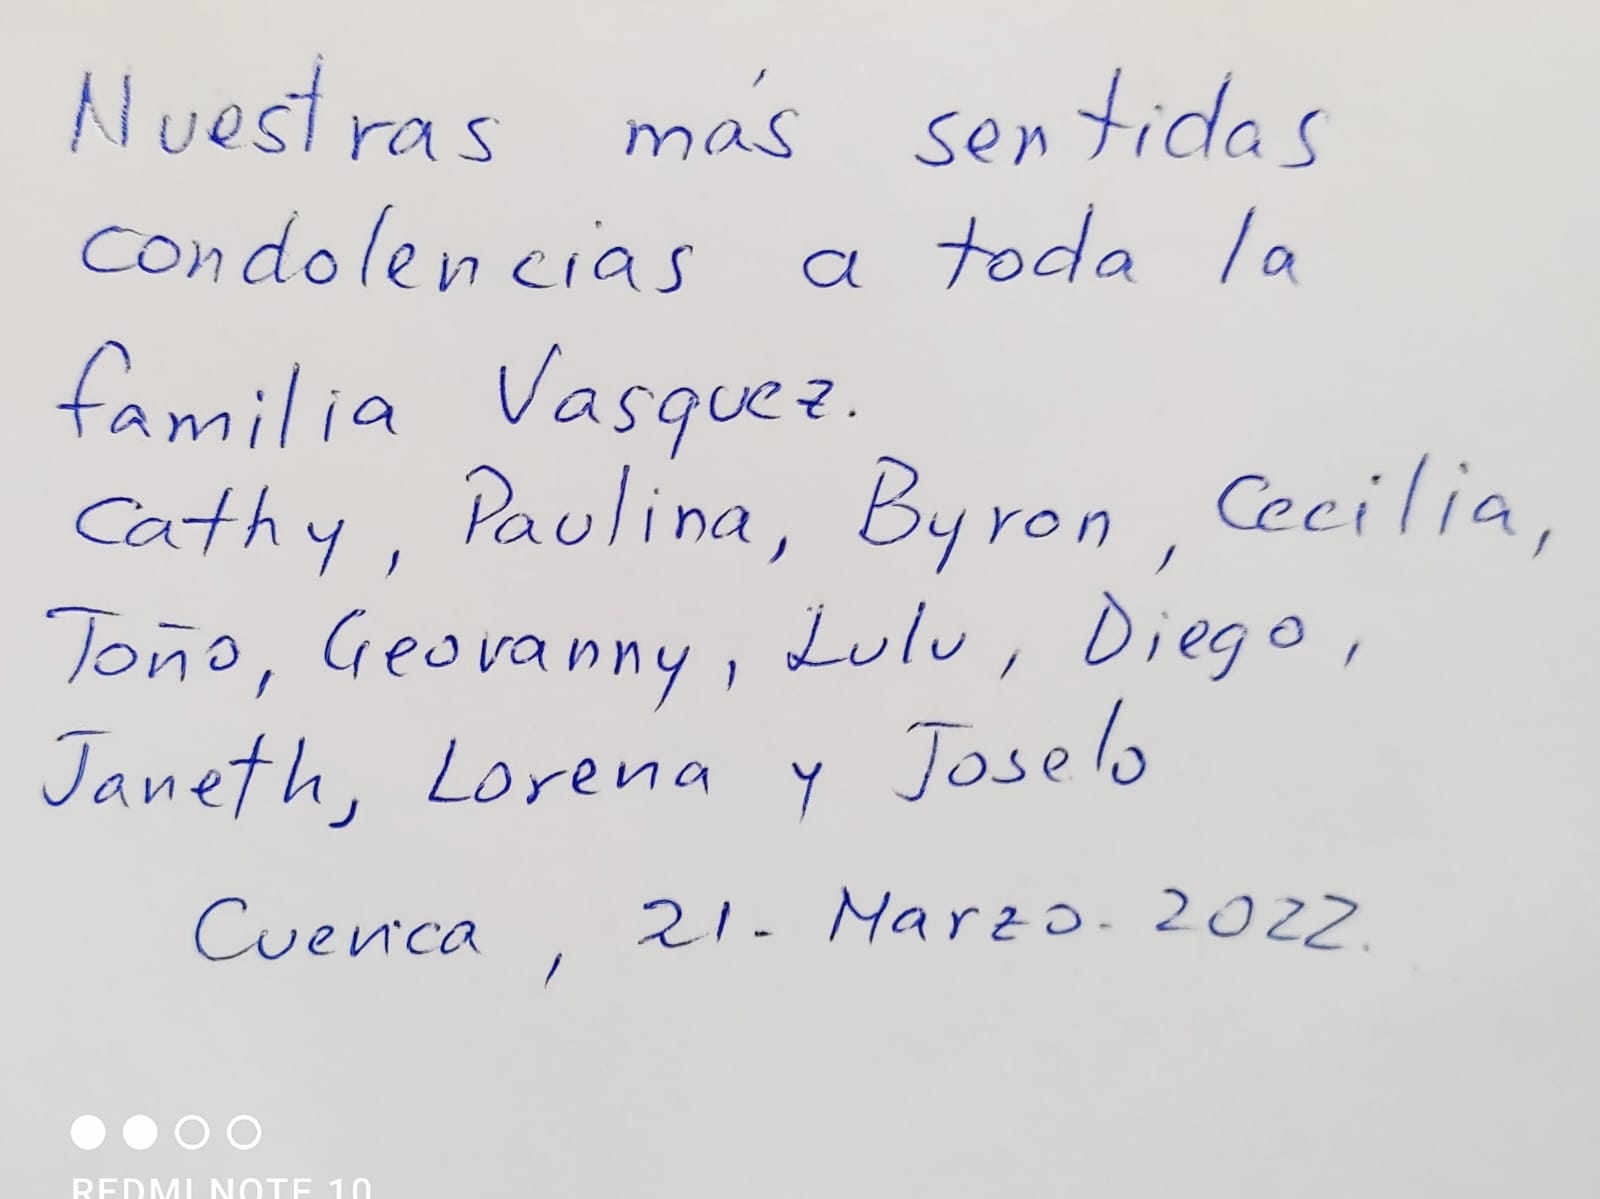 Nuestras más sentidas
condolencias a toda la
familia Vasquez.
Cathy, Paulina, Byron, Cecilia,
Toño, Geovanny, Lulu, Diego,
Janeth, Lorena y Joselo
Cuenca, 21- Marzo- 2022.
REDMI NOTE 10